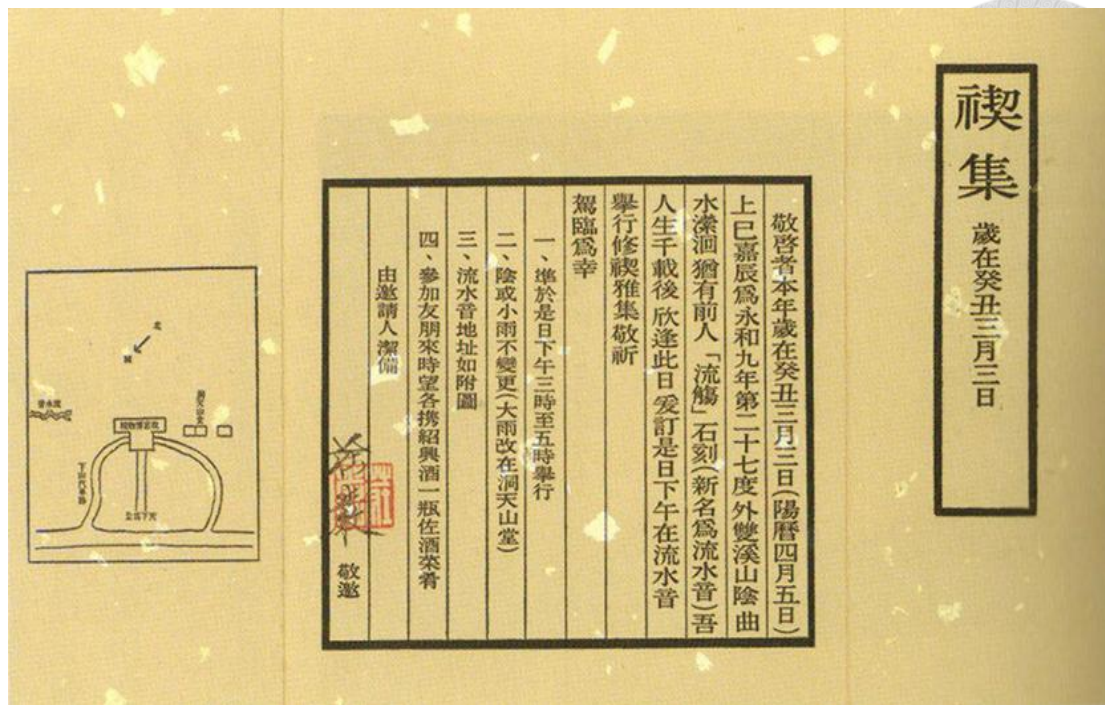 禊集 歲在癸丑三月三日
敬啓者本年歲在癸丑三月三日(陽曆四月五日)
上巳嘉辰爲永和九年第二十七度外雙溪山陰曲
水瀠洄猶有前人「流觴」石刻(新名爲流水音)吾
人生千載後欣逢此日爰訂是日下午在流水音
擧行修禊雅集敬祈
駕臨爲幸
一、準於是日下午三時至五時擧行
二、陰或小雨不變更(大雨改在洞天山堂)
三、流水音地址如附圖
四、參加友朋來時望各携紹興酒一瓶佐酒菜肴
由邀請人潔備
敬邀
北
洞天山堂
流水音
天下爲公